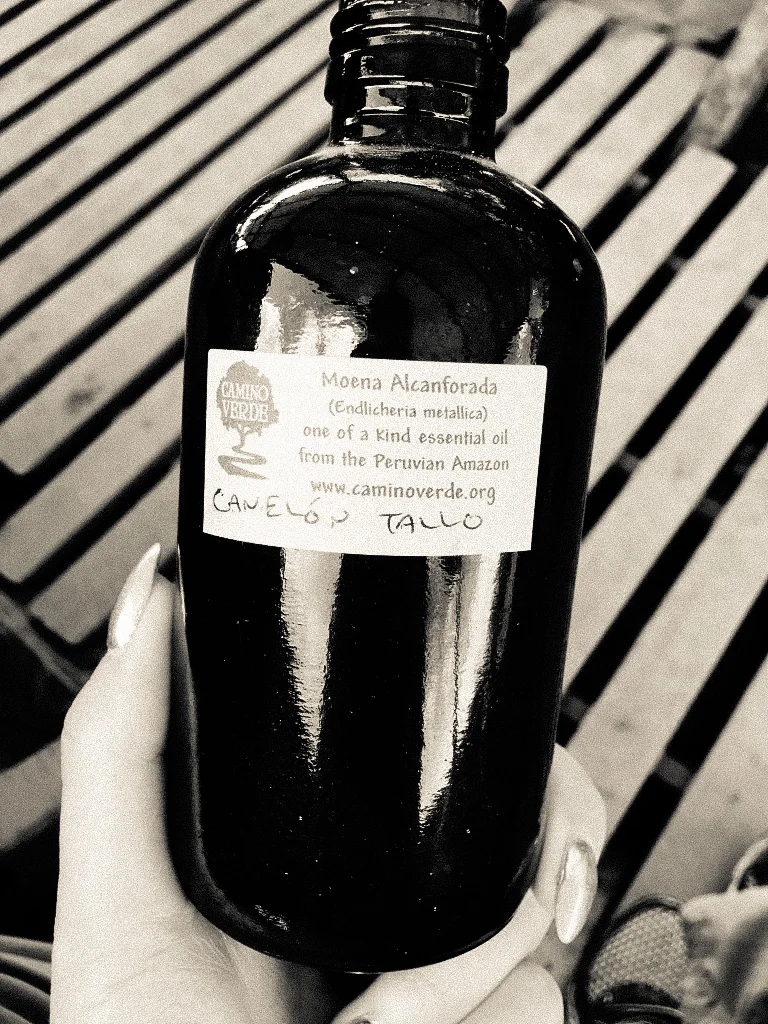 CAMINO
VERDE
Moena Alcanforada
(Endlicheria metallica)
one of a kind essential oil
from the Peruvian Amazon
www.caminoverde.org
CANELÓN TALLO